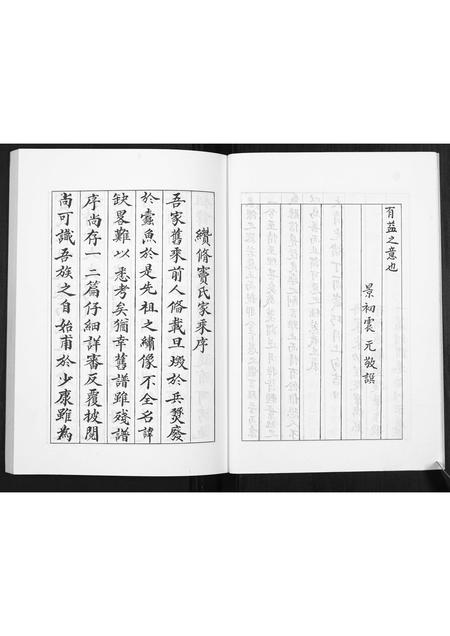 有益之意也
景初震元敬譔
纘脩竇氏家乘序
吾家舊乘前人脩載旦燬於兵燹廢
於蠹魚於是先祖之繡像不全名諱
缺畧難以悉考矣猶幸舊譜雖殘譜
序尚存一二篇仔細詳審反覆披閱
尚可識吾族之自始甫於少康雖為